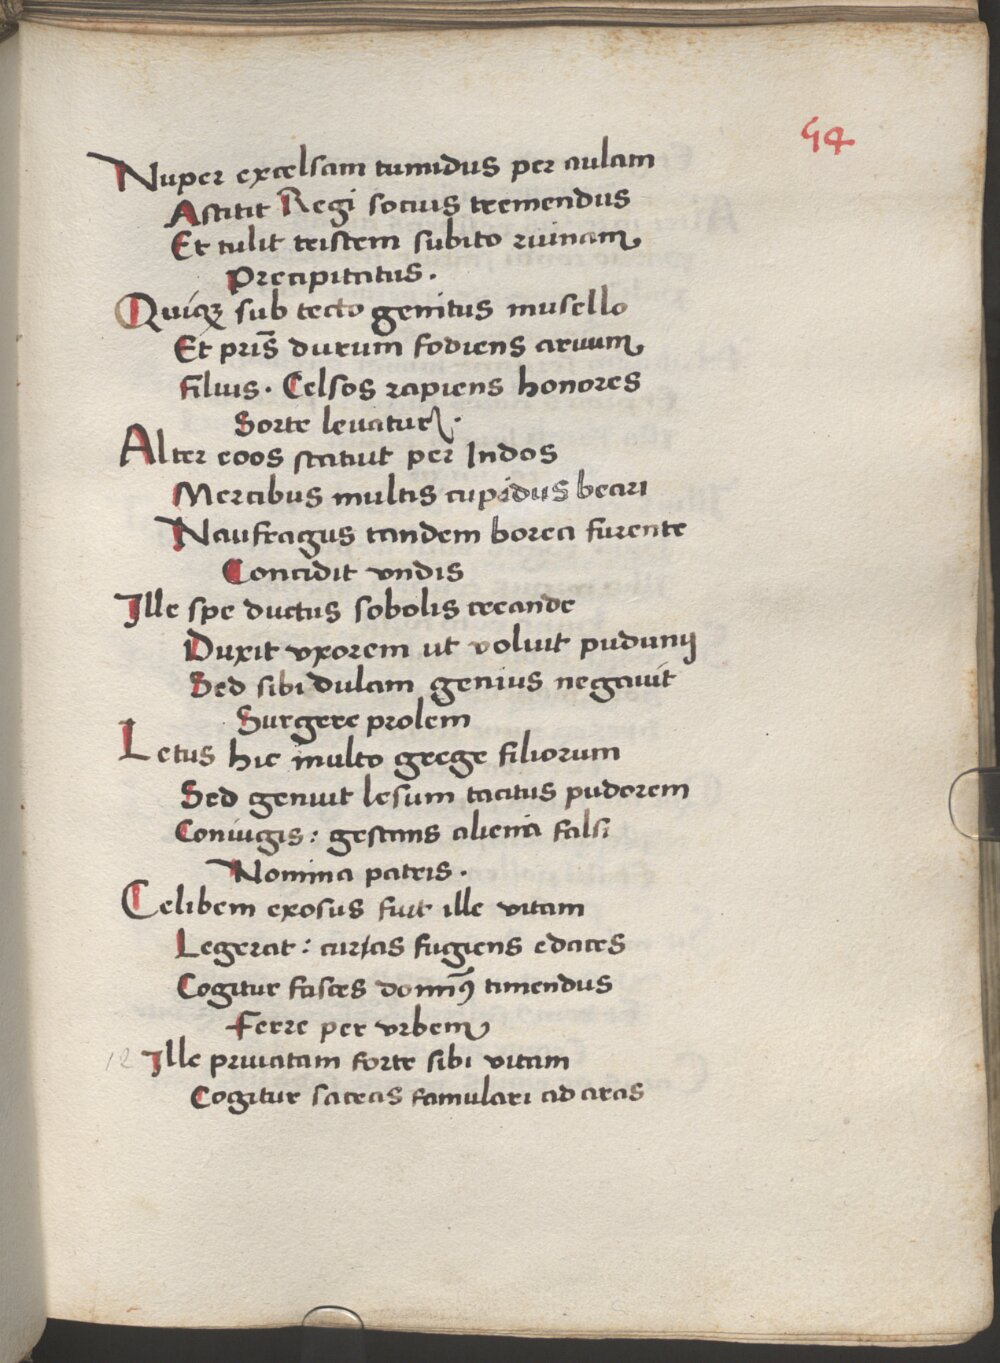 54
Nuper excelsam tumidus per aulam
Astitit Regi socius tremendus
Et tulit tristem subito ruinam
Precipitatus.
Quiqꝫ sub tecto genitus musello
Et pris̄ durum fodiens arvum
filius. Celsos rapiens honores
Sorte levatur.
Alter eoos statuit per Indos
Mercibus multis cupidus beari
Naufragus tandem borea furente
Concidit vndis
Ille spe ductus sobolis creande
Duxit vxorem ut voluit pudicam
Sed sibi dulcem genius negavit
Surgere prolem
Letus hic multo grege filiorum
Sed genuit lesum tacitus pudorem
Coniugis: gestans aliena falsi
Nomina patris.
Celibem exosus fuit ille vitam
Legerat: curas fugiens edaces
Cogitur fasces timendus
Ferre per vrbem
12 Ille privatam forte sibi vitam
Cogitur sacras famulari ad aras